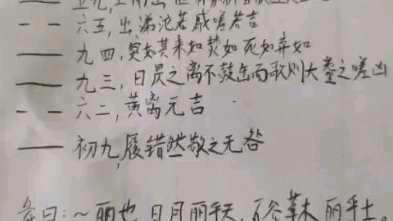 六五,出涕沱若戚嗟若吉
九四,突如其来如焚如死如弃如
九三,日昃之离不鼓缶而歌则大耋之嗟凶
六二,黄离元吉
初九,履错然敬之无咎
彖曰:~丽也,日月丽乎天,百谷草木丽乎土。